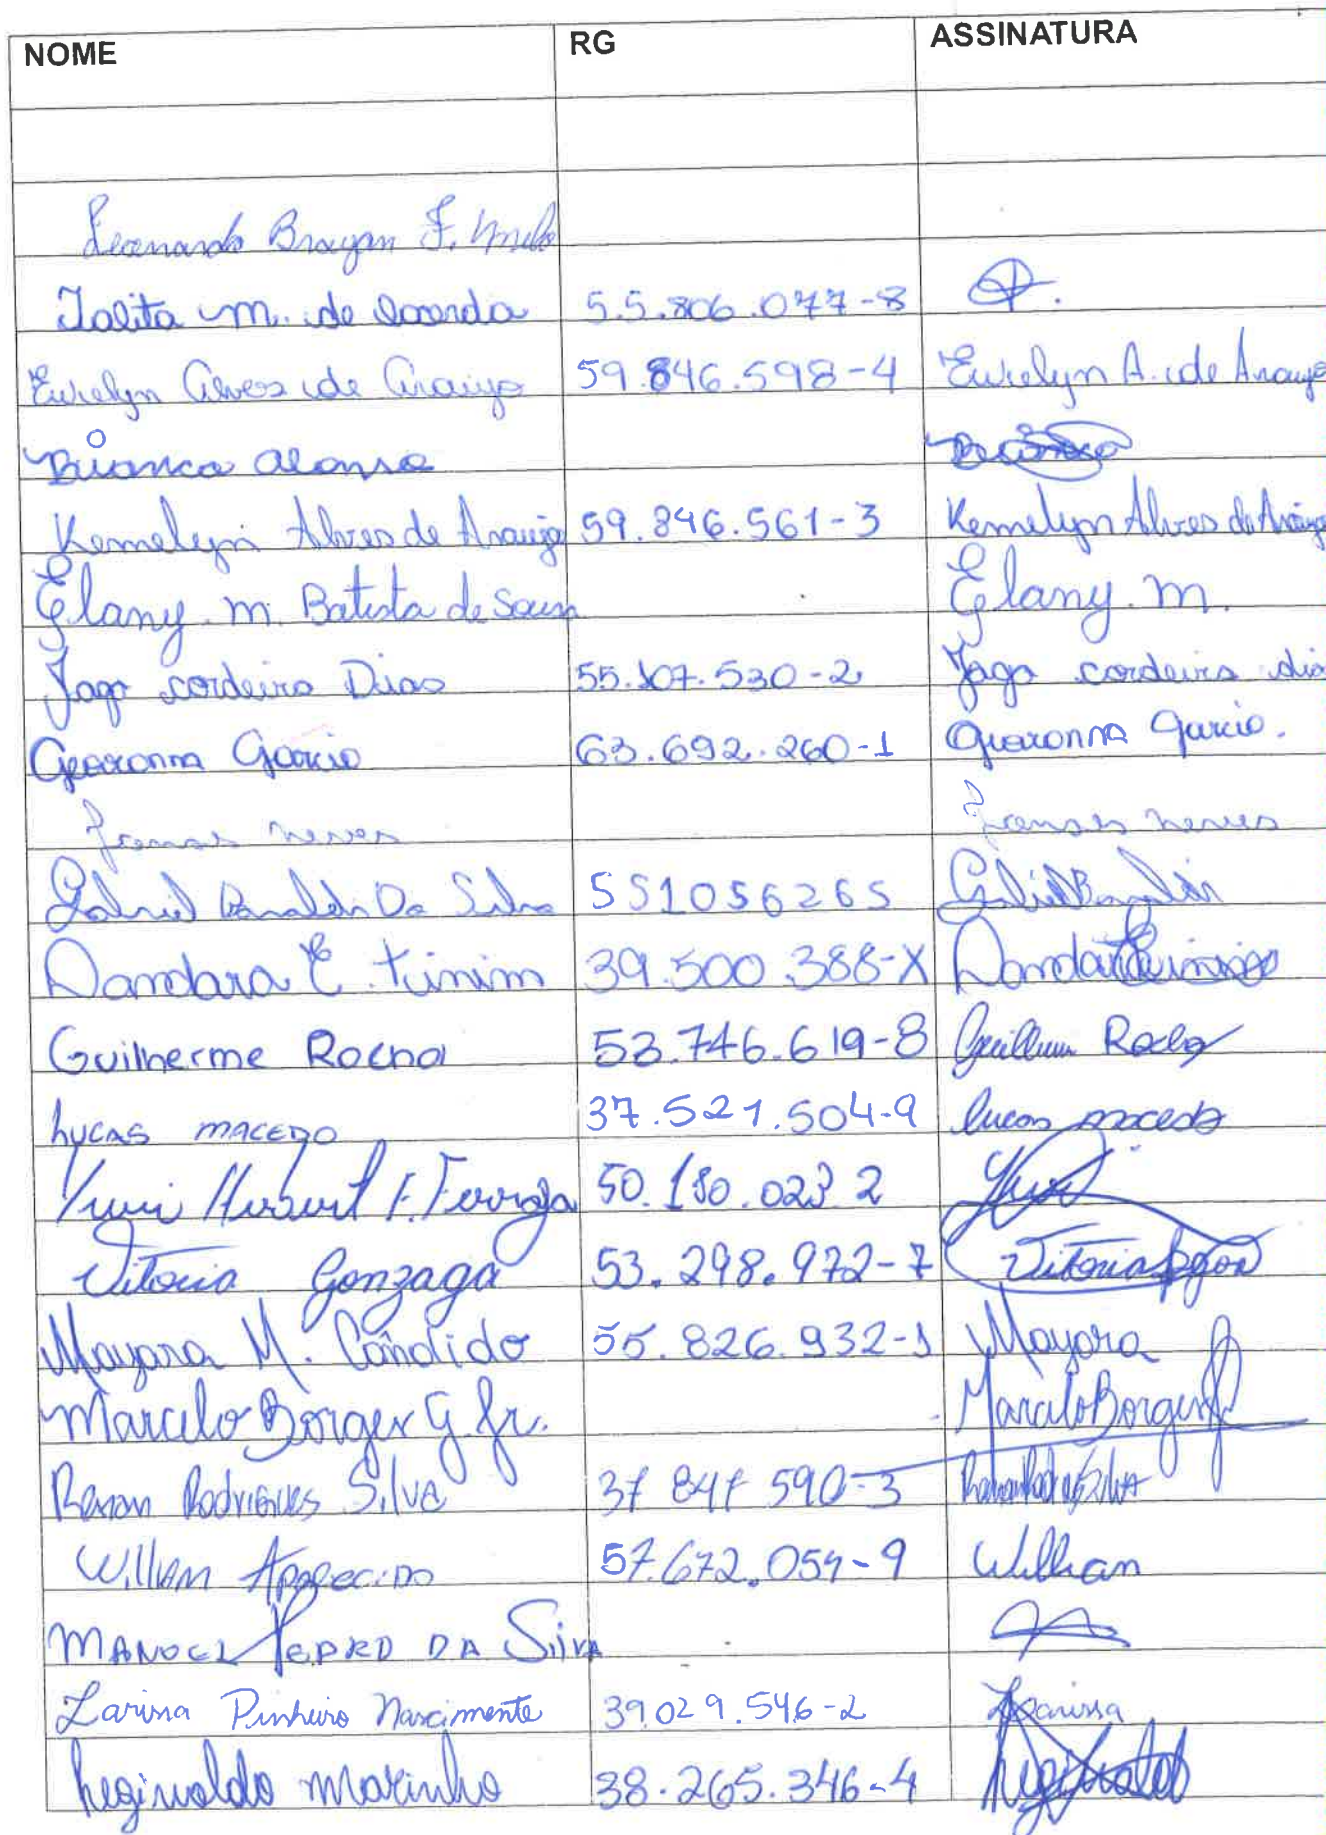 NOME RG ASSINATURA
Leonardo Brayan F. Melo
Talita M. de Lacerda 55.806.077-8
Evelyn Alves de Araujo 59.846.598-4 Evelyn A. de Araujo
Bianca Alonso
Kemelyn Alves de Araujo 59.846.561-3 Kemelyn Alves de Araujo
Elany. M. Batista de Sousa Elany. M.
Jago cordeiro Dias 55.107.530-2 Jago cordeiro dia
Geovanna Garcia 63.692.260-1 Geovanna Garcia.
neves neves
Gabriel Da Silva 551056265 Gabriel
Dandara E. 39.500.388-X Dandara
Guilherme Rocha 53.746.619-8 Guilherme Rocha
Lucas MACEDO 37.521.504-9 lucas macedo
Yuri F. 50.180.023 2 Yuri
Vitoria Gonzaga 53.298.972-7 Vitoria
Mayara M. Cândido 55.826.932-1 Mayara
Marcelo Borges G Jr. Marcelo Borges Jr
Renan Rodrigues Silva 37 847 590-3 Renan Rodrigues Silva
Willian Aparecido 57.672.054-9 Willian
MANOEL PEDRO DA SilVA
Larissa Pinheiro Nascimento 39.029.546-2 Larissa
Reginaldo Marinho 38.265.346-4 Reginaldo